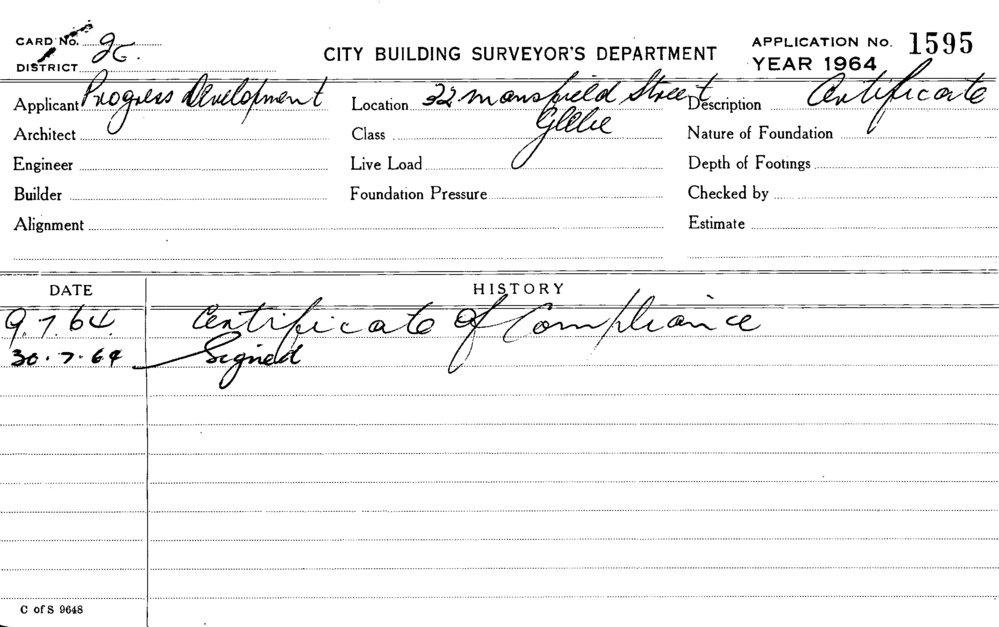 CARD No.
DISTRICT
CITY BUILDING SURVEYOR'S DEPARTMENT
APPLICATION No. 1595
YEAR 1964
Applicant Progress Development
Location 32 Mansfield Street
Glebe
Description Certificate
Architect
Class
Nature of Foundation
Engineer
Live Load
Depth of Footings
Builder
Foundation Pressure
Checked by
Alignment
Estimate
DATE
HISTORY
9.7.64. Certificate of Compliance
30.7.64 Signed
C of S 9648